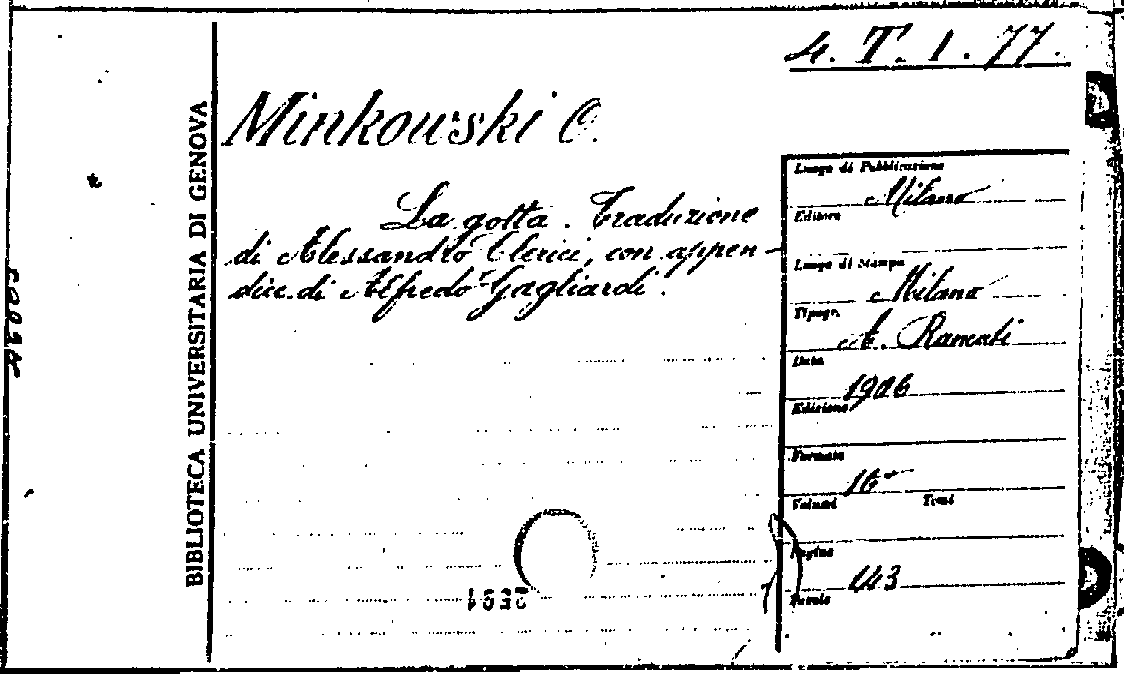 4. T. 1. 77.
BIBLIOTECA UNIVERSITARIA DI GENOVA
Minkowski O.
La gotta. Traduzione
di Alessandro Clerici, con appen-
dice di Alfredo Gagliardi.
Luogo di Pubblicazione
Milano
Editore
Luogo di Stampa
Milano
Tipogr.
A. Rancati
Data
1906
Edizione
Formato
16°
Volumi Tomi
Pagine
143
Tavole